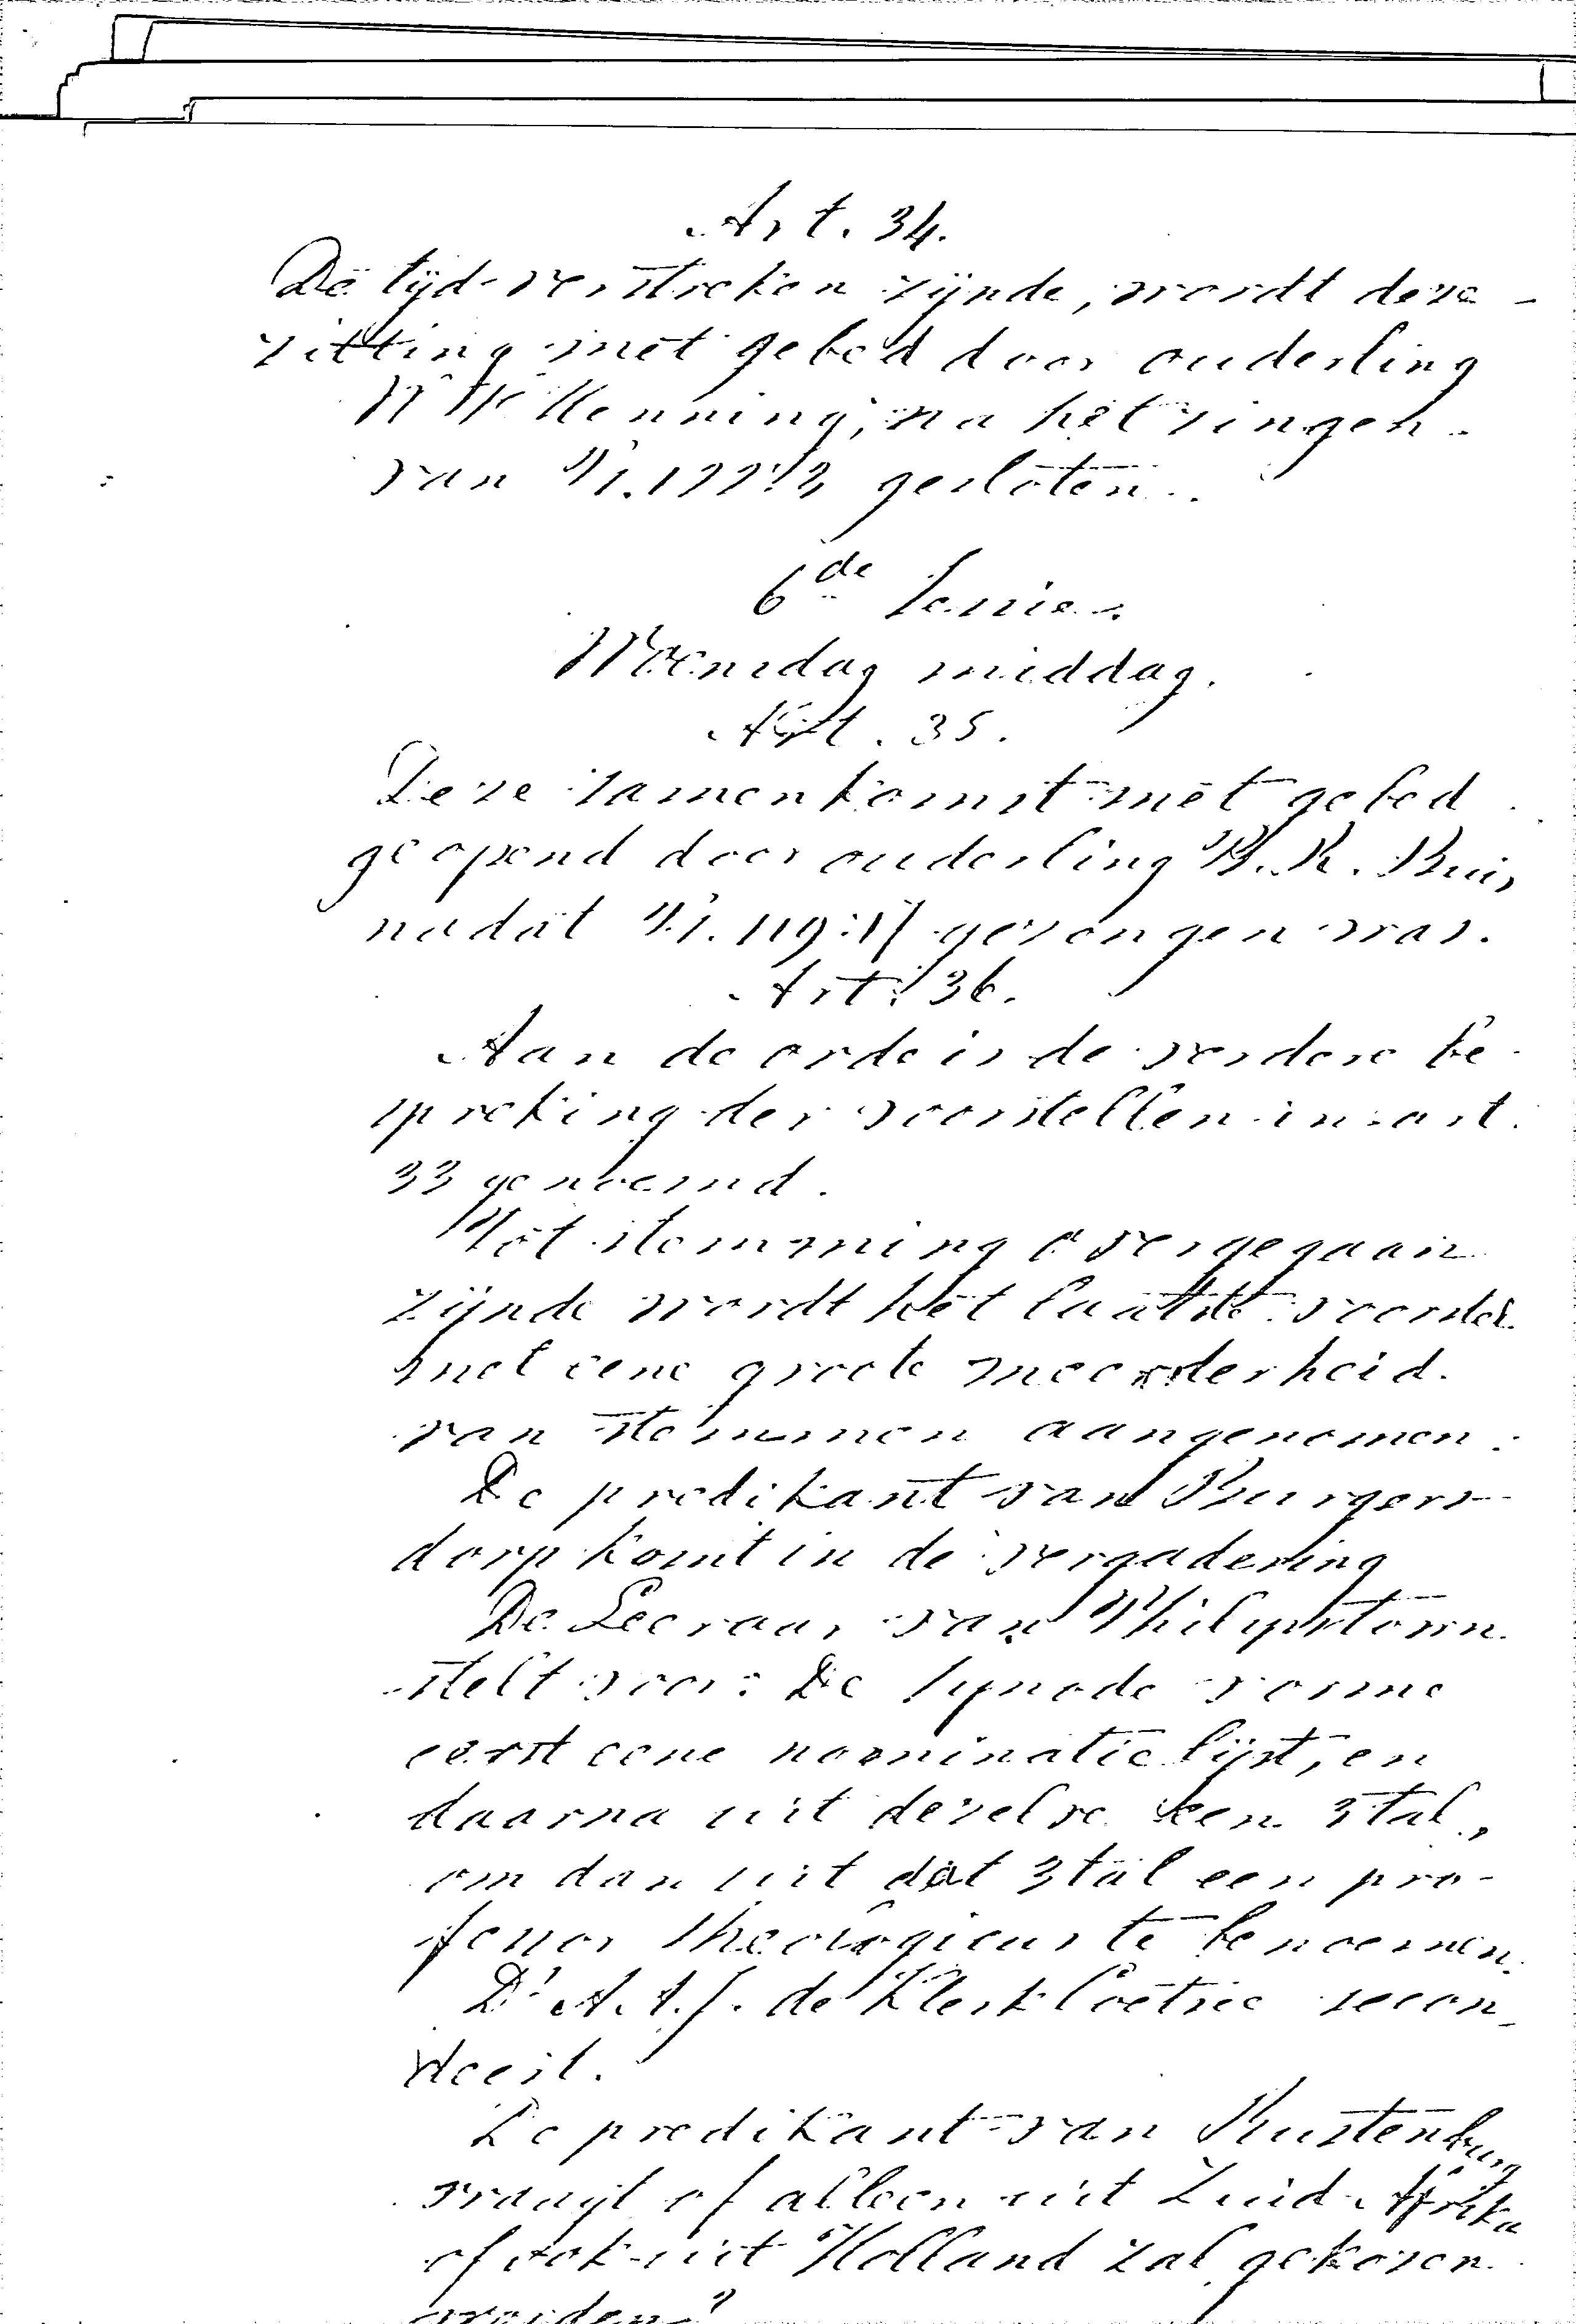 Art. 34.
De tijd verstreken zijnde, wordt deze
zitting met gebed door ouderling
Henning, na het zingen
van Ps. gesloten.
6de Sessie.
Woensdag middag.
Art. 35.
Deze zamenkomst met gebed
geopend door ouderling Buis
nadat Ps. 119: gezongen was.
Art. 36.
Aan de orde is de verdere be
spreking der voorstellen in art.
33 genoemd.
Tot stemming overgegaan
zijnde wordt het laatste voorstel
met eene groote meerderheid
van stemmen aangenomen.
De predikant van Burgers-
dorp komt in de vergadering
De Leeraar van Philipstown
stelt voor: De Synode vorme
eerst eene nominatie lijst, en
daarna uit dezelve een 3tal,
om dan uit dat 3tal een pro-
fessor theologicus te benoemen.
Ds A.A.J. de Klerk Coetzee secon-
deert.
De predikant van Rustenburg
vraagt of alleen uit Zuid-Afrika
of ook uit Holland zal gekozen
worden?